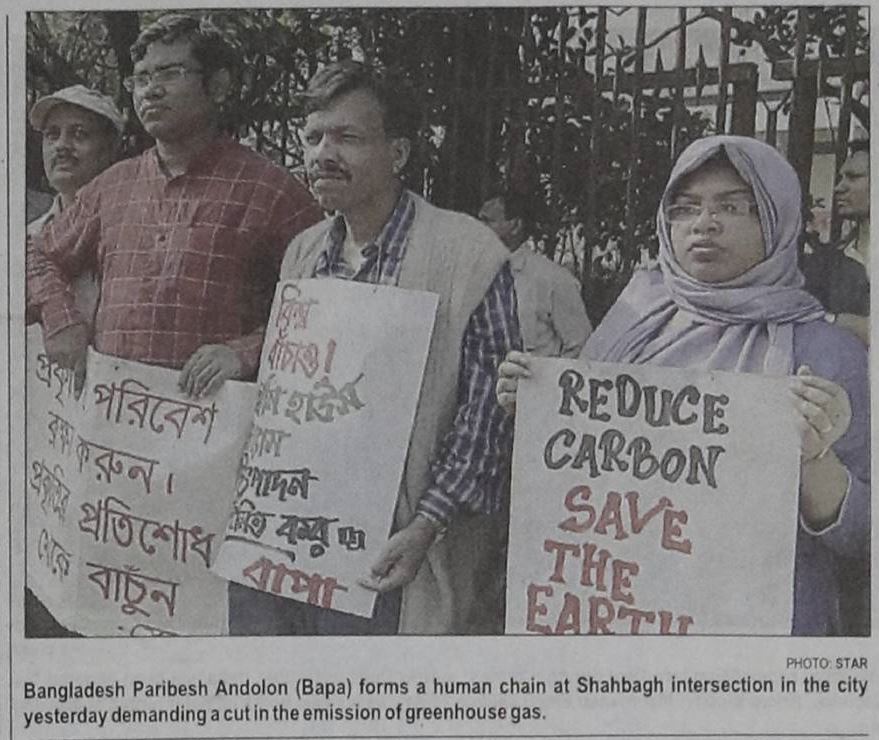 প্রকৃতি পরিবেশ
রক্ষা করুন।
প্রকৃতির প্রতিশোধ
থেকে বাঁচুন
বিশ্ব
বাঁচাও।
হাউস
উৎপাদন
বন্ধ কর
বাপা
REDUCE
CARBON
SAVE
THE
EARTH
PHOTO: STAR
Bangladesh Paribesh Andolon (Bapa) forms a human chain at Shahbagh intersection in the city
yesterday demanding a cut in the emission of greenhouse gas.